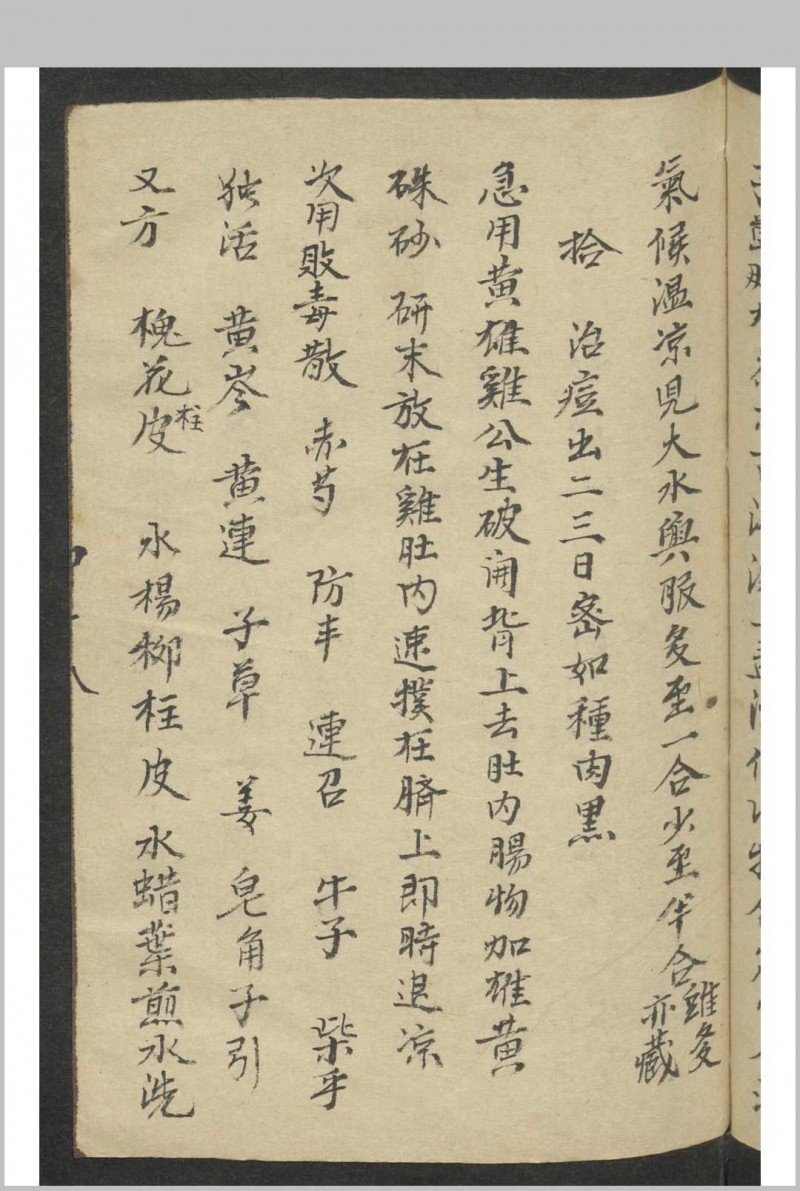 氣候溫凉見大水與服多至一合少至半合雖多亦藏
拾 治痘出二三日密如種肉黑
急用黄雄雞公生破開背上去肚内腸物加雄黄
硃砂 研末放在雞肚内速撲在臍上即時退凉
次用敗毒散 赤芍 防丰 連召 牛子 柴乎
独活 黄岑 黄連 子草 姜 皂角子引
又方 槐花柱皮 水楊柳柱皮水蜡葉煎水洗